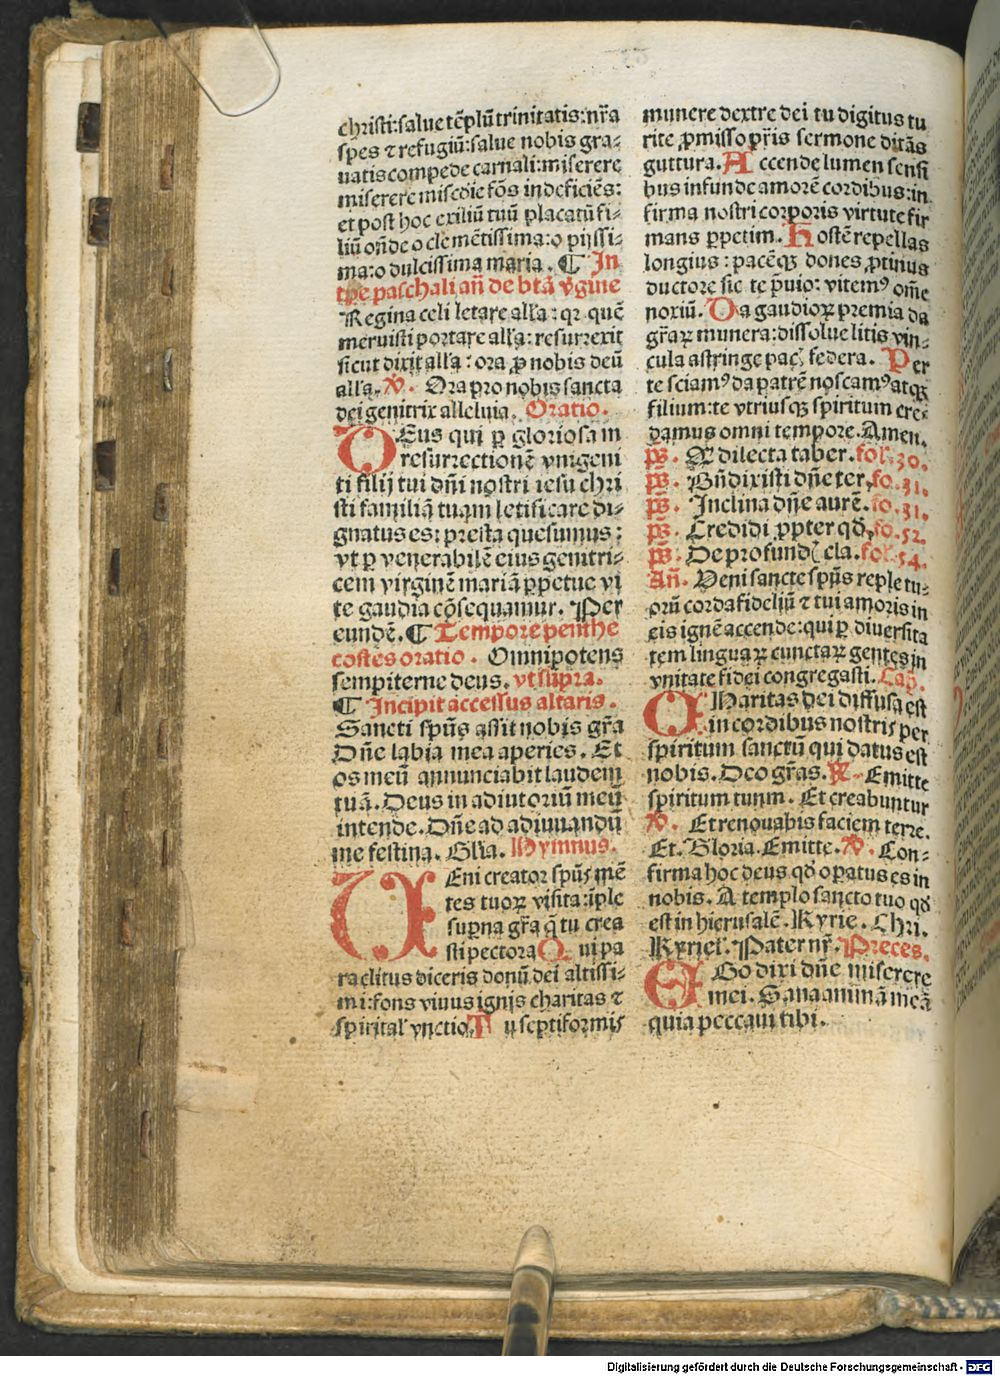 christi:salue tēplū trinitatis:nr̄a
spes ⁊ refugiū:salue nobis gra-
uatis compede carnali:miserere
miserere miscd̄ie fōs indeficiēs:
et post hoc exiliū tuū placatū fi-
liū on̄de o clementissima:o pijssi-
ma:o dulcissima maria. ¶ In
tp̄e paschali añ de btā v̄gine
Regina celi letare all'a : qr quē
meruisti portare all'a: resurrexit
sicut dixit all'a : ora ꝓ nobis deū
all'a. ℣. Ora pro nobis sancta
dei genitrix alleluia. Oratio.
DEus qui ꝑ gloriosa m
resurrectionē vnigeni
ti filij tui dn̄i nostri iesu chri
sti familiā tuam letificare di-
gnatus es: presta quesumus :
vt ꝑ venerabilē eius genitri-
cem virginē mariā ꝑpetue vi
te gaudia cōsequamur. Per
eundē. ¶ Tempore penthe
costes oratio. Omnipotens
sempiterne deus. vt supra.
¶ Incipit accessus altaris.
Sancti sp̄us assit nobis gr̄a
Dn̄e labia mea aperies. Et
os meū annunciabit laudem
tuā. Deus in adiutoriū meū
intende. Dn̄e ad adiuuandū
me festina. Gl'ia. Hymnus.
VEni creator sp̄us mē
tes tuoꝝ visita:īple
suꝑna gr̄a q̄ tu crea
sti pectora Qui pa
raclitus diceris donū dei altissi-
mi:fons viuus ignis charitas ⁊
spirital' vnctio. Tu septiformis
munere dextre dei tu digitus tu
rite ꝓmisso pr̄is sermone ditās
guttura. Accende lumen sensi
bus infunde amorē cordibus:in
firma nostri corporis virtute fir
mans ꝑpetim. Hostē repellas
longius : pacēqꝫ dones ꝓtinus
ductore sic te p̄uio: vitemꝰ om̄e
noxiū. Da gaudioꝝ premia da
gr̄aꝝ munera:dissolue litis vin-
cula astringe pac̄ federa. Per
te sciamꝰ da patrē noscamꝰ atqꝫ
filium:te vtriusqꝫ spiritum cre-
damus omni tempore. Amen.
ps̄. Q dilecta taber. fol. 30.
ps̄. Bn̄dixisti dn̄e ter. fo. 31.
ps̄. Inclina dn̄e aurē. fo. 31.
ps̄. Credidi ꝓpter qd̄. fo. 52.
ps̄. De profund̄ cla. fol. 54.
Añ. Veni sancte sp̄us reple tu-
orū corda fideliū ⁊ tui amoris in
eis ignē accende:qui ꝑ diuersita
tem linguaꝝ cunctaꝝ gentes in
vnitate fidei congregasti. Cap̄.
CHaritas dei diffusa est
in cordibus nostris per
spiritum sanctū qui datus est
nobis. Deo gr̄as. ℣. Emitte
spiritum tuum. Et creabuntur
℣. Et renouabis faciem terre.
Et. Gloria. Emitte. ℣. Con-
firma hoc deus qd̄ oꝑatus es in
nobis. A templo sancto tuo qd̄
est in hierusalē. Kyrie. Chri.
Kyriel'. Pater nr̄. Preces.
EGo dixi dn̄e miserere
mei. Sana animā meā
quia peccaui tibi.
Digitalisierung gefördert durch die Deutsche Forschungsgemeinschaft - DFG